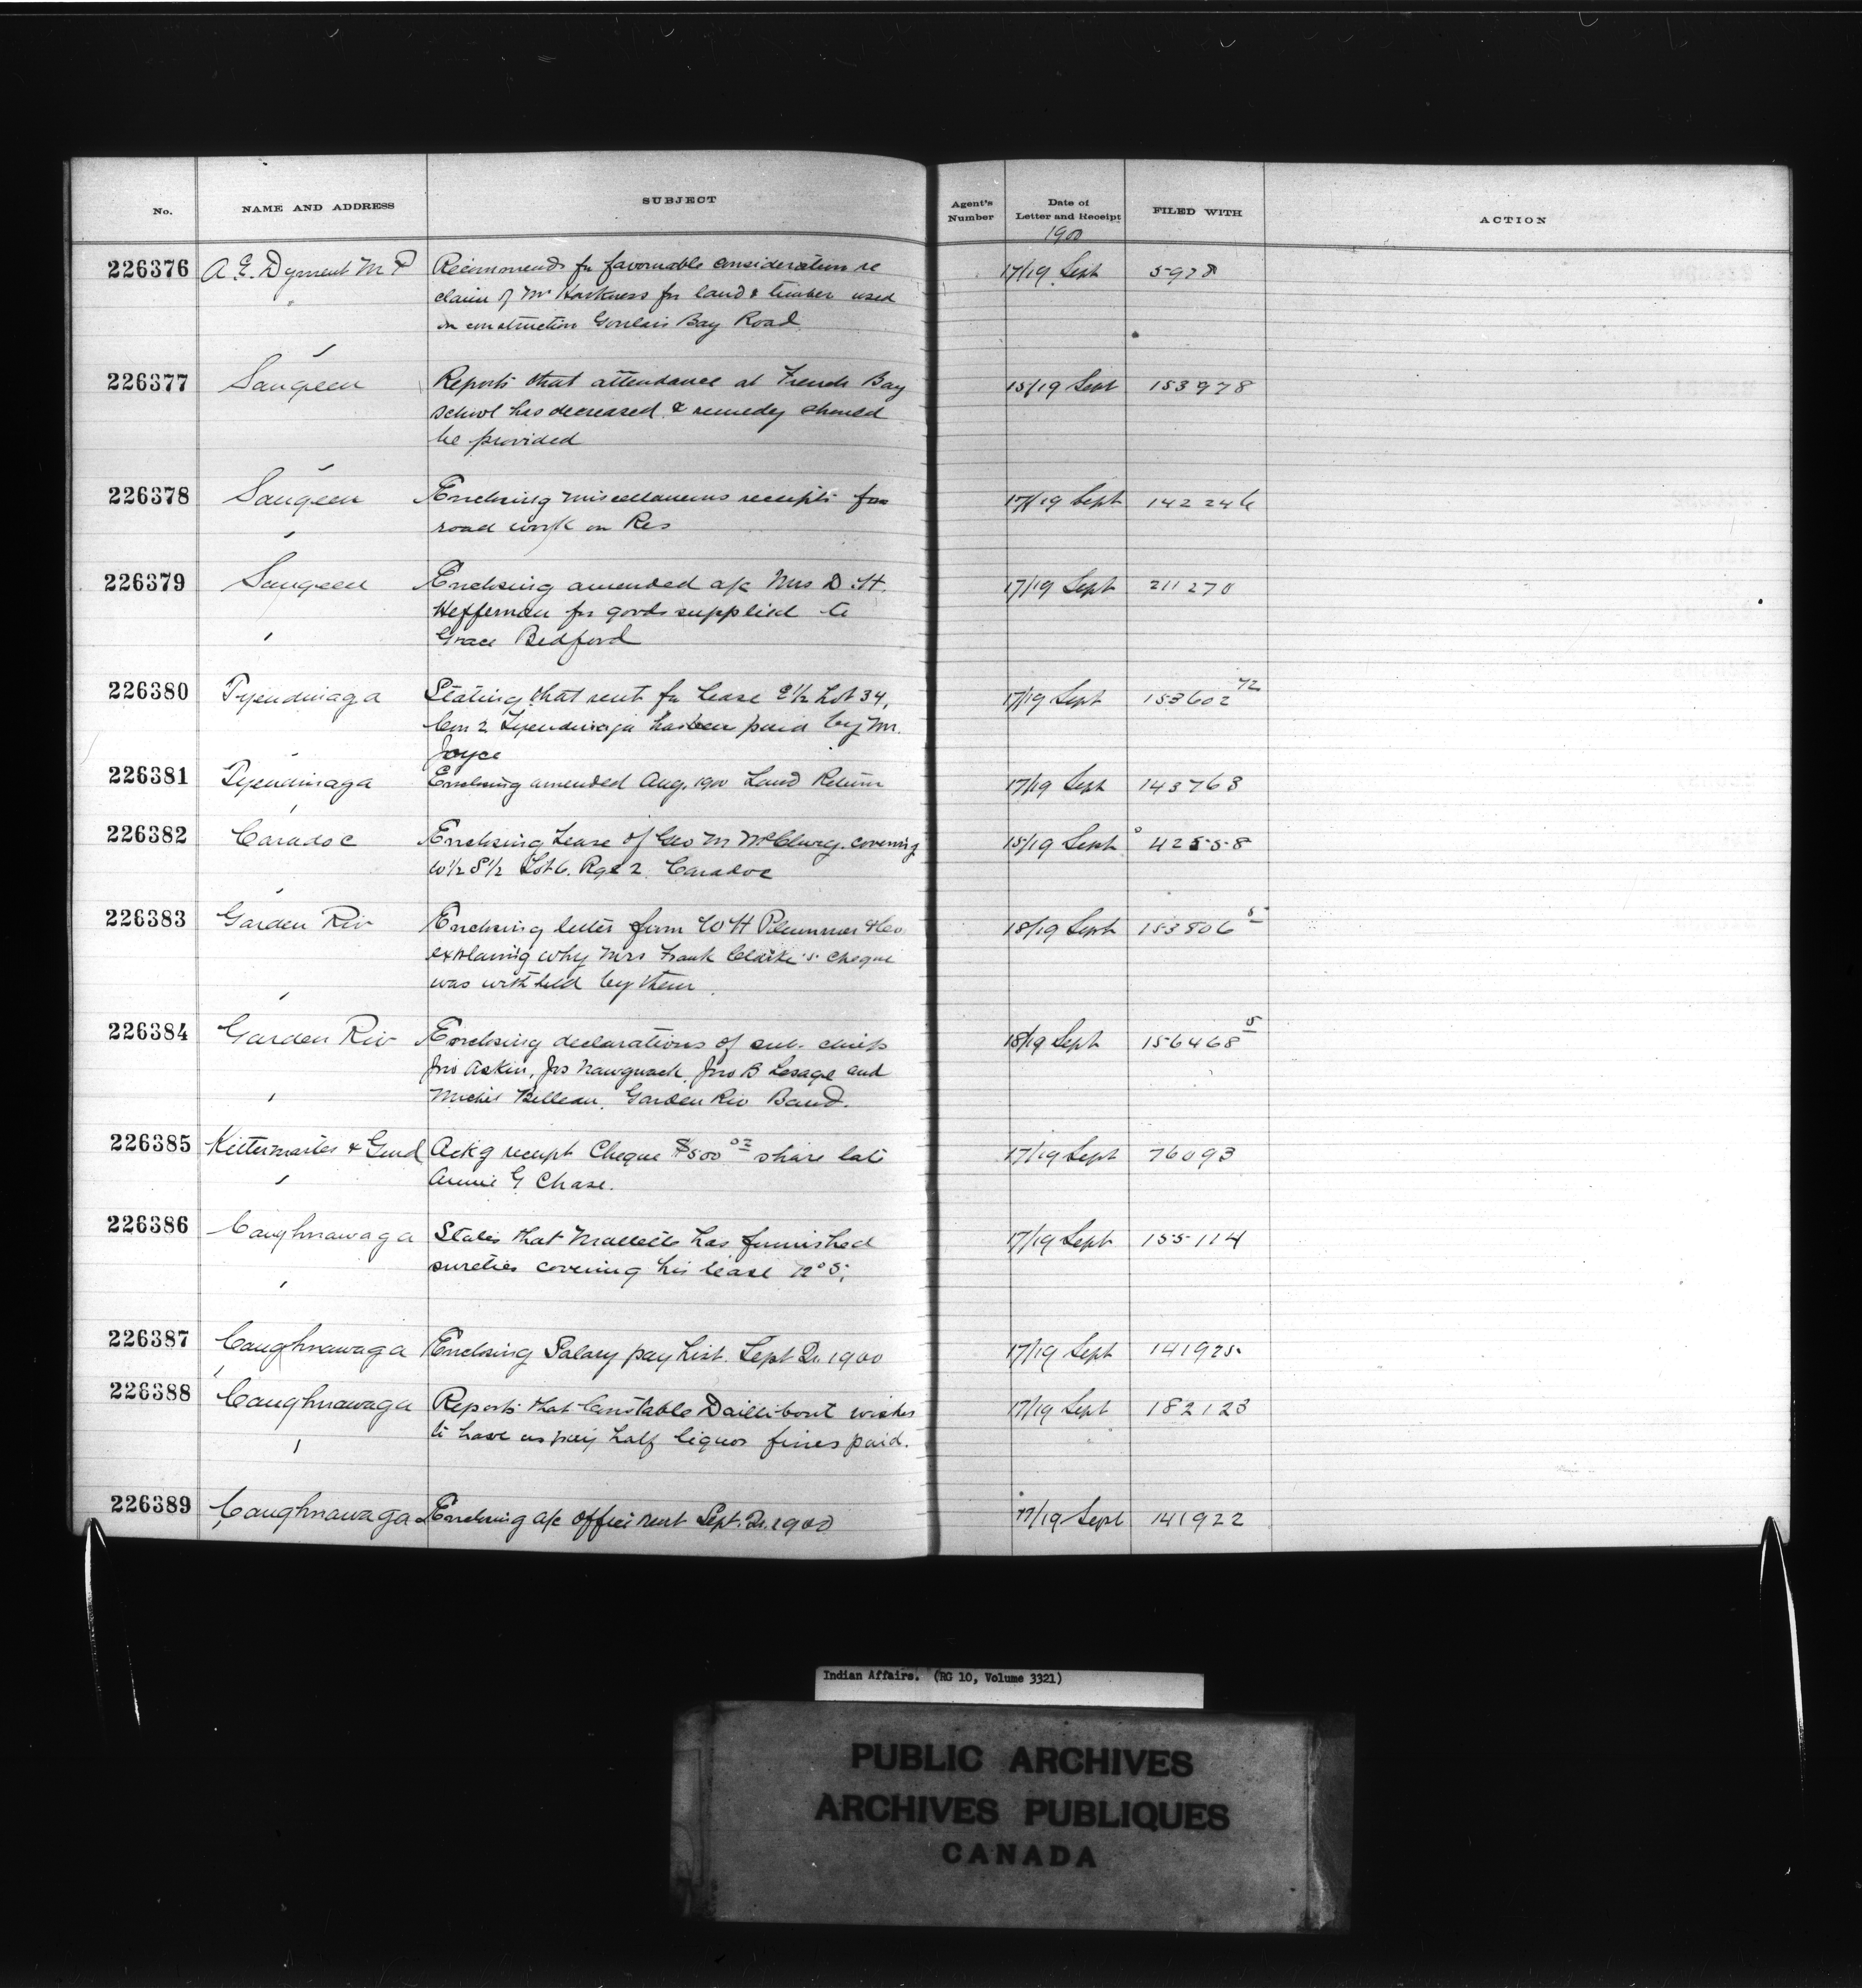 No. NAME AND ADDRESS SUBJECT Agent's Number Date of Letter and Receipt FILED WITH ACTION
1900
226376 A. E. Dyment M P Recommends for favourable consideration re 17/19 Sept 5978
" claim of Mr Harkness for land & timber used
in construction Goulais Bay Road
226377 Saugeen Reports that attendance at French Bay 15/19 Sept 153978
school has decreased & remedy should
be provided
226378 Saugeen Enclosing miscellaneous receipts for 17/19 Sept 142246
road work on Res
226379 Saugeen Enclosing amended a/c Mrs D. H. 17/19 Sept 211270
Heffernan for goods supplied to
Grace Bedford
226380 Tyendinaga Stating that rent for lease E½ Lot 34, 17/19 Sept 153602 72
Con 2 Tyendinaga has been paid by Mr.
Joyce
226381 Tyendinaga Enclosing amended Aug. 1900 Land Return 17/19 Sept 143763
226382 Caradoc Enclosing Lease of Geo M McClurg covering 15/19 Sept 42558
W½ S½ Lot 6. Rge 2. Caradoc
226383 Garden Riv Enclosing letter from W H Plummer & Co 18/19 Sept 153806 5
explaining why Mrs Frank Clarke's cheque
was withheld by them
226384 Garden Riv Enclosing declarations of sub. chiefs 18/19 Sept 156468 5
Jno Askin, Jos Nawguach, Jno B Lesage and
Michel Belleau, Garden Riv Band.
226385 Kittermaster & Gurd Ackg receipt Cheque $500 00 share late 17/19 Sept 76093
Annie G Chase.
226386 Caughnawaga States that Mallette has furnished 17/19 Sept 155114
sureties covering his lease No 5.
226387 Caughnawaga Enclosing Salary pay List. Sept Qr 1900 17/19 Sept 141925
226388 Caughnawaga Reports that Constable Daillibout wishes 17/19 Sept 182123
to have half liquor fines paid.
226389 Caughnawaga Enclosing a/c office rent Sept. Qr. 1900 17/19 Sept 141922
Indian Affairs. (RG 10, Volume 3321)
PUBLIC ARCHIVES
ARCHIVES PUBLIQUES
CANADA